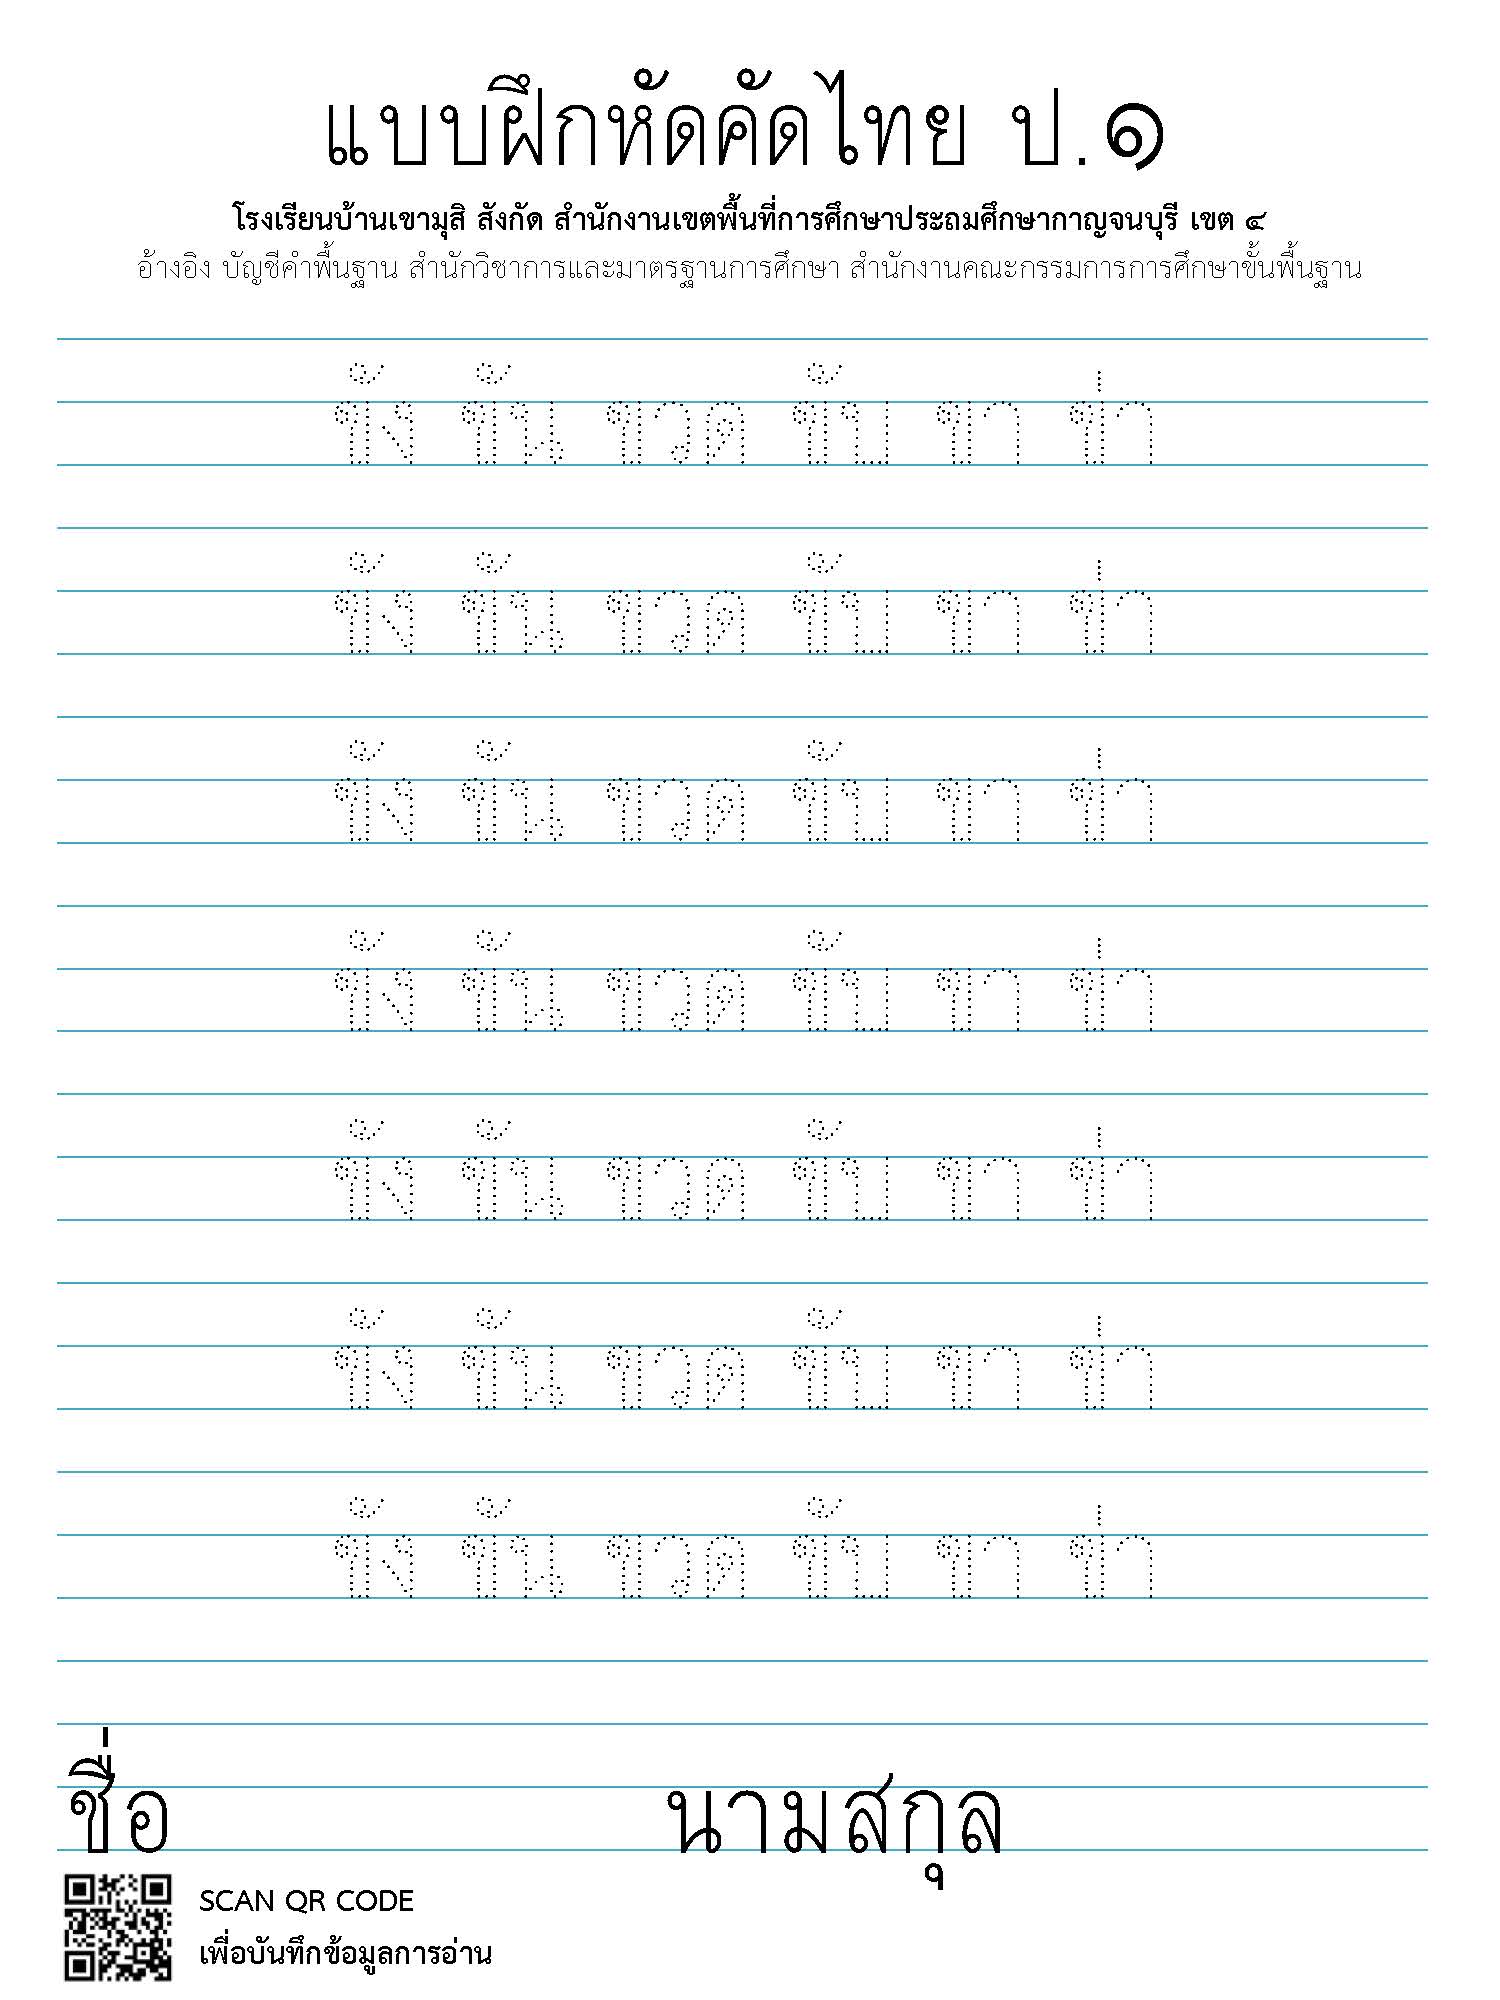 แบบฝึกหัดคัดไทย ป.๑
โรงเรียนบ้านเขามุสิ สังกัด สำนักงานเขตพื้นที่การศึกษาประถมศึกษากาญจนบุรี เขต ๔
อ้างอิง บัญชีคำพื้นฐาน สำนักวิชาการและมาตรฐานการศึกษา สำนักงานคณะกรรมการการศึกษาขั้นพื้นฐาน
ขัง ขัน ขวด ขับ ขา ข่า
ขัง ขัน ขวด ขับ ขา ข่า
ขัง ขัน ขวด ขับ ขา ข่า
ขัง ขัน ขวด ขับ ขา ข่า
ขัง ขัน ขวด ขับ ขา ข่า
ขัง ขัน ขวด ขับ ขา ข่า
ขัง ขัน ขวด ขับ ขา ข่า
ชื่อ นามสกุล
SCAN QR CODE
เพื่อบันทึกข้อมูลการอ่าน